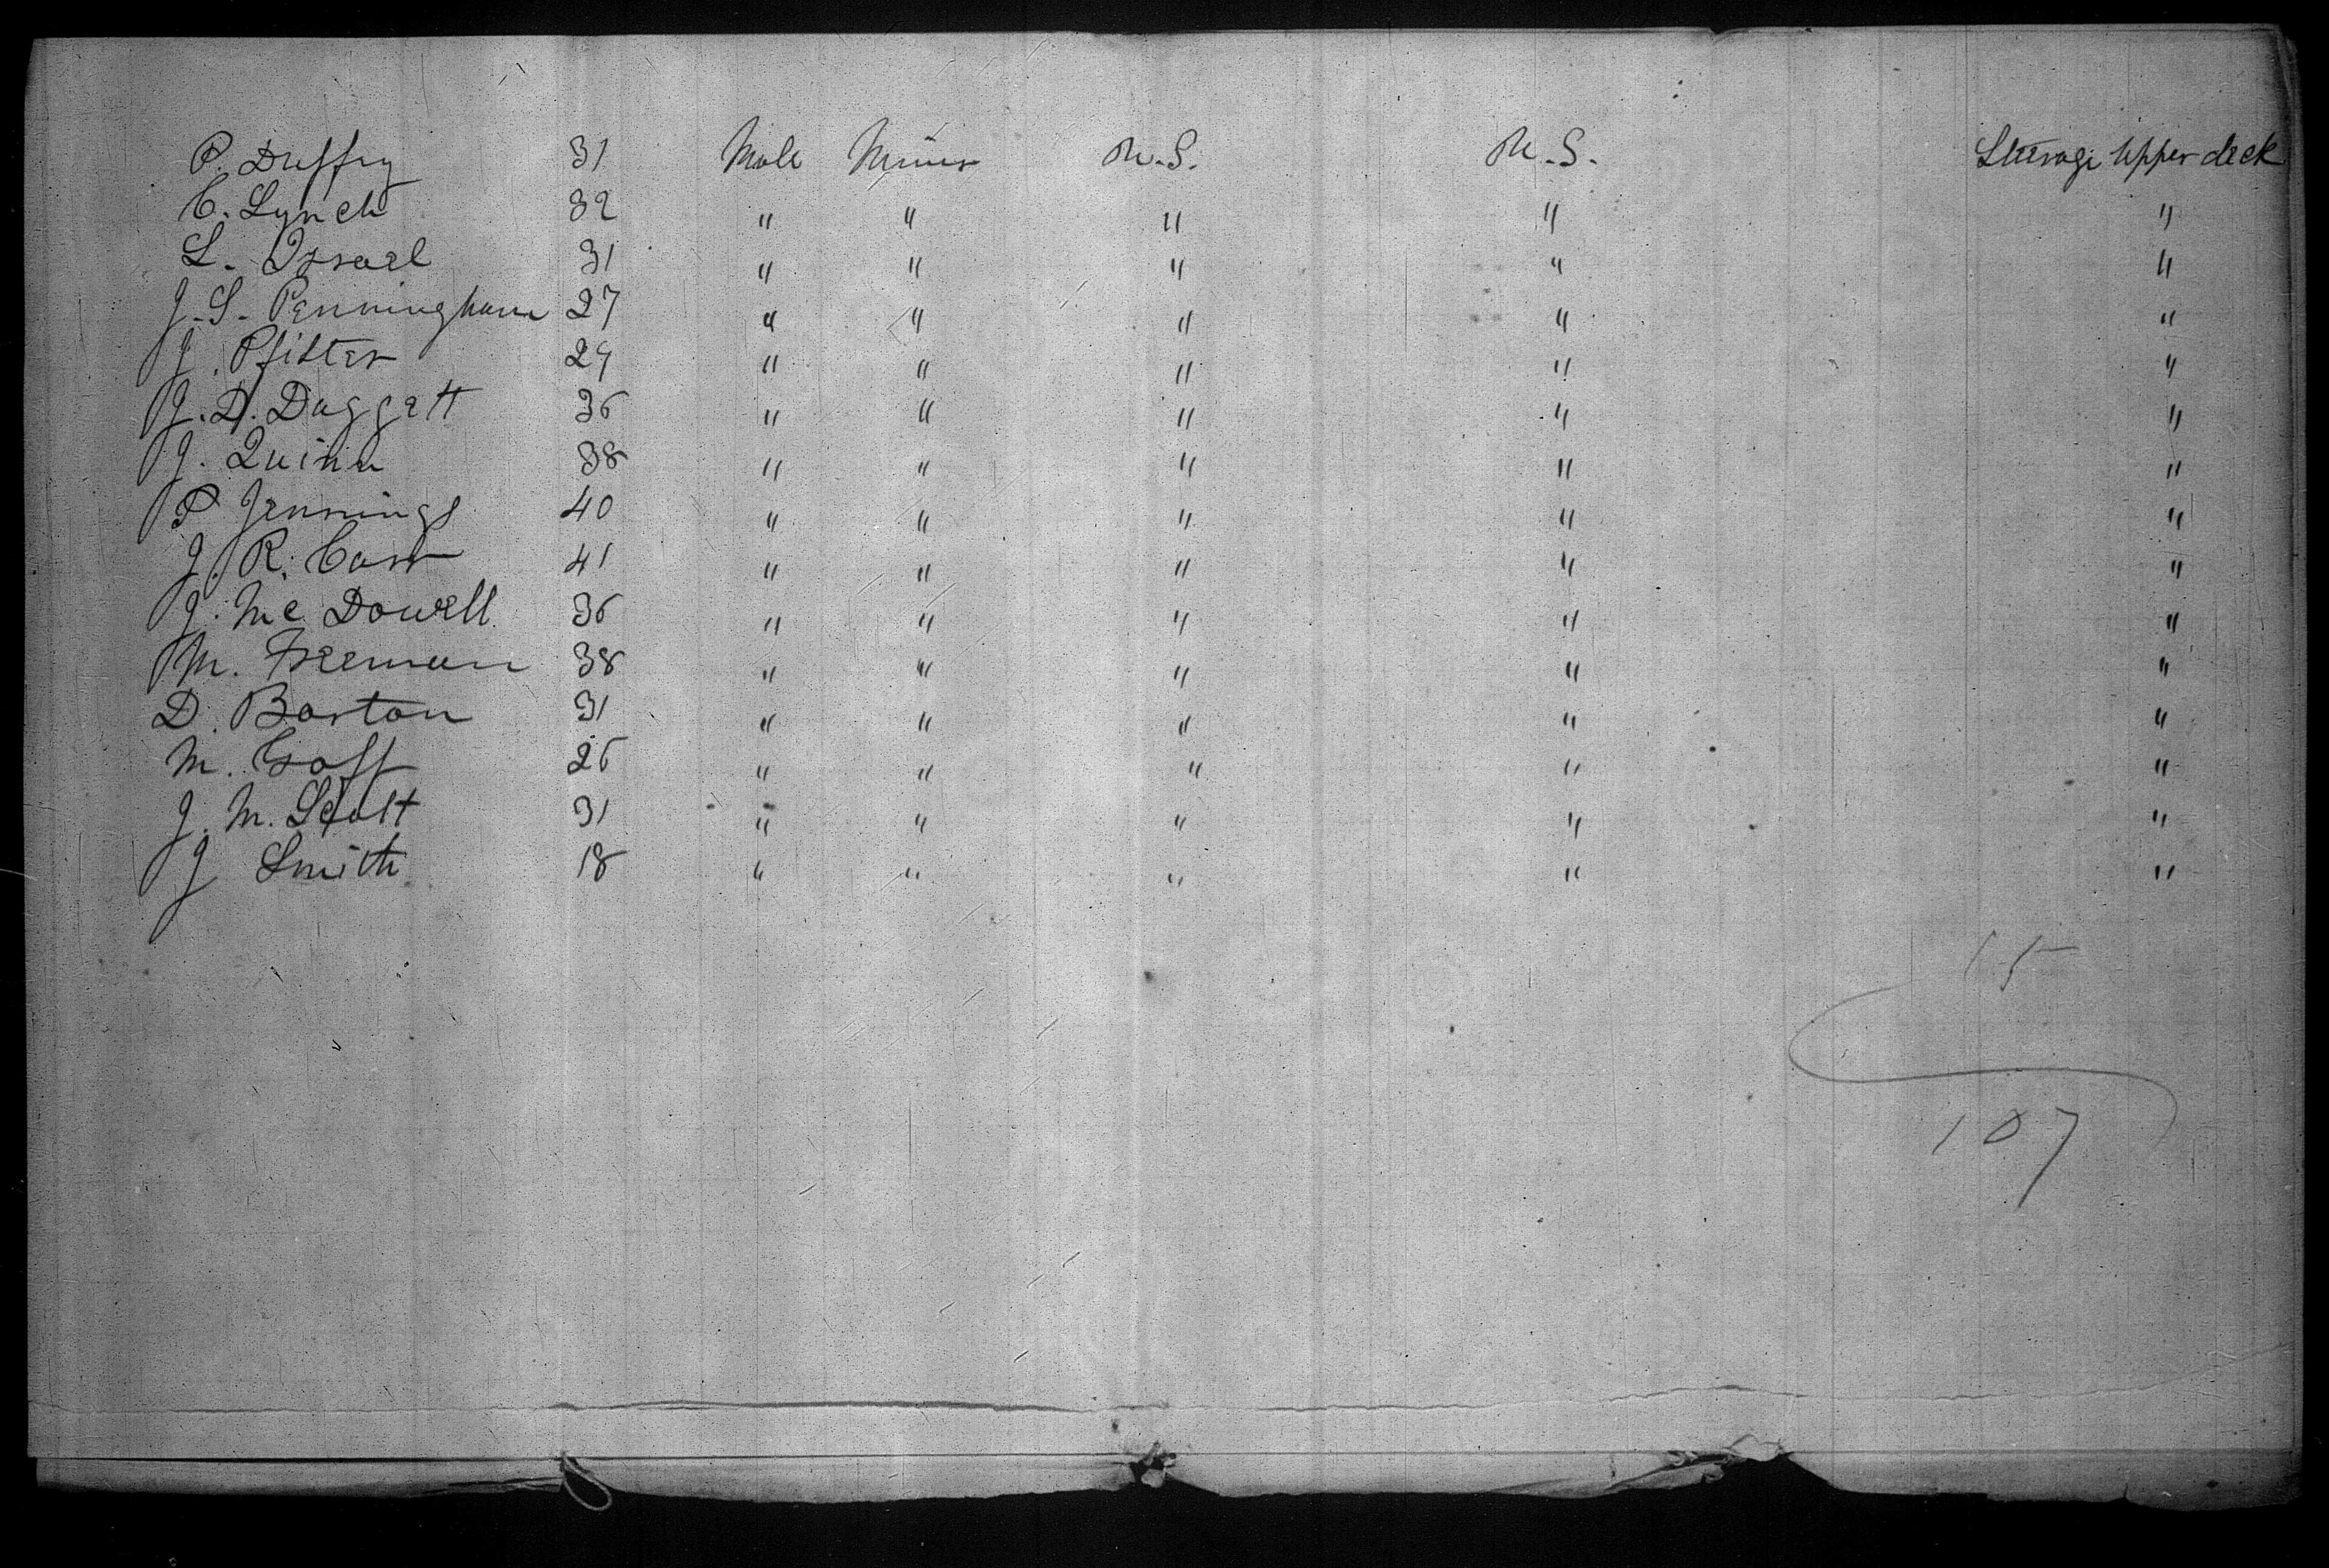 P. Duffy 31 Male Miner U.S. U.S. Steerage Upper deck
C. Lynch 32 " " " " "
L. Israel 31 " " " " "
J. S. Penningham 27 " " " " "
J. Pfister 29 " " " " "
J. D. Daggett 36 " " " " "
J. Quinn 38 " " " " "
P Jennings 40 " " " " "
J. R. Carr 41 " " " " "
J. Mc Dowell 36 " " " " "
M. Freeman 38 " " " " "
D. Barton 31 " " " " "
M. Goff 26 " " " " "
J. M. Scott 31 " " " " "
J Smith 18 " " " " "
15
107